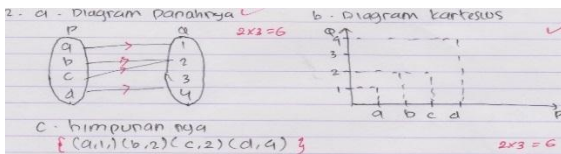 2. a. Diagram panahnya
P Q 2x3=6
a 1
b 2
c 3
d 4
b. Diagram kartesius
Q
4
3
2
1
a b c d P
c. himpunan nya
{(a,1,)(b,2)(c,2)(d,4)} 2x3=6